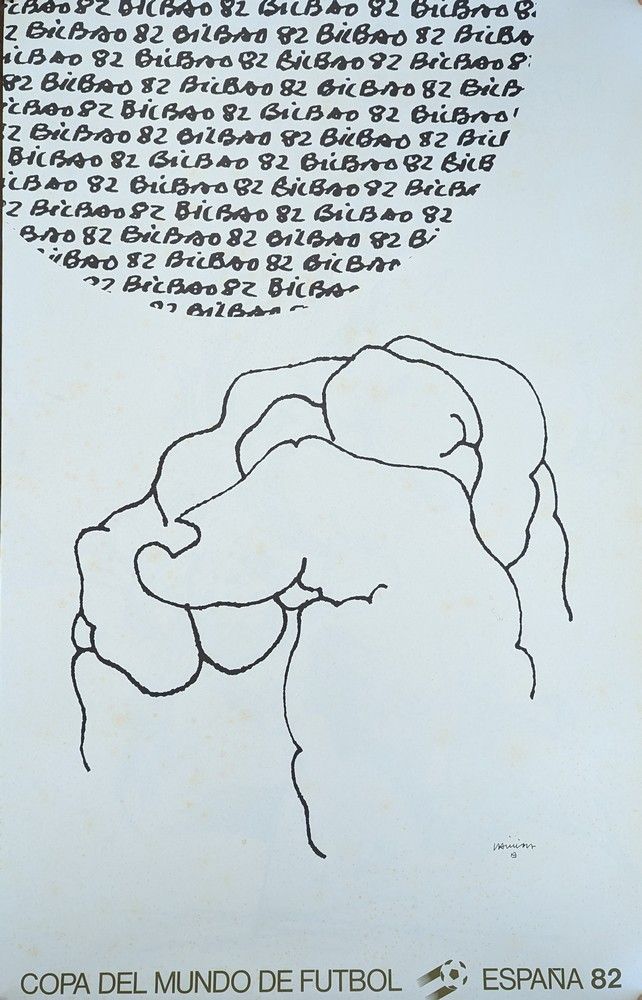 ilBAO 82 BilBAO 82 BilBAO 82 BilBAO 8
2 BilBAO 82 BilBAO 82 BilBAO 82 BilBA
ilBAO 82 BilBAO 82 BilBAO 82 BilBAO 8
82 BilBAO 82 BilBAO 82 BilBAO 82 BilB
ilBAO 82 BilBAO 82 BilBAO 82 BilBAO
2 BilBAO 82 BilBAO 82 BilBAO 82 Bil
BilBAO 82 BilBAO 82 BilBAO 82 BilB
ilBAO 82 BilBAO 82 BilBAO 82 BilBA
2 BilBAO 82 BilBAO 82 BilBAO 82
BAO 82 BilBAO 82 BilBAO 82 Bi
ilBAO 82 BilBAO 82 BilBAO
82 BilBAO 82 BilBA
82 BilBAO
COPA DEL MUNDO DE FUTBOL ESPAÑA 82